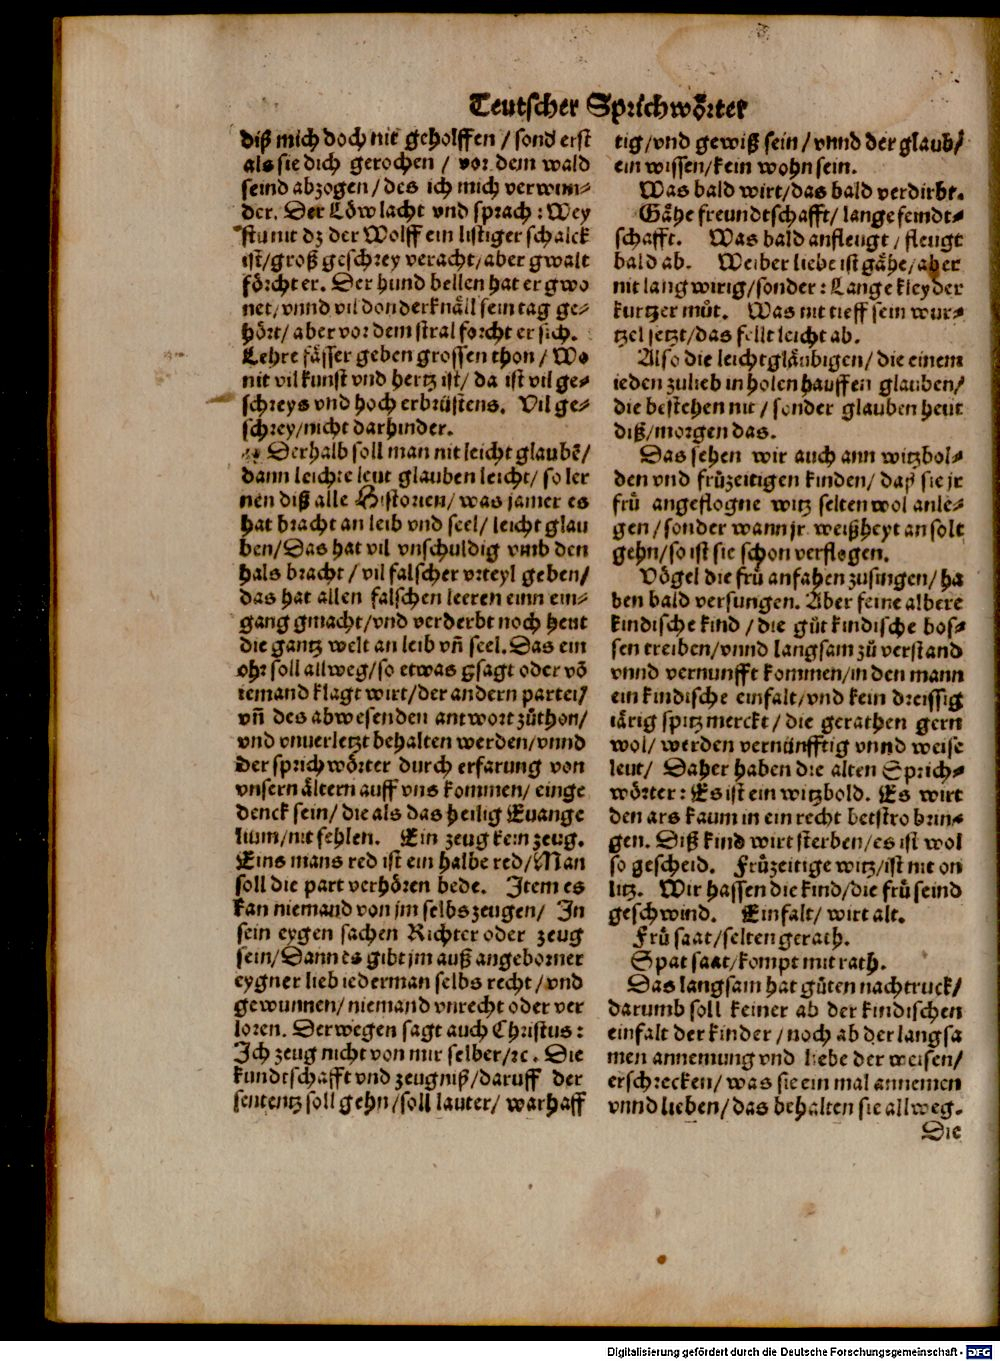 Teutscher Sprichwörter
diß mich doch nit geholffen / sond erst
als sie dich gerochen / vor dem wald
seind abzogen / des ich mich verwun⸗
der. Der Löw lacht vnd sprach: Wey
stu nit dz der Wolff ein listiger schalck
ist/groß geschrey veracht/aber gwalt
förcht er. Der hund bellen hat er gwo
net/vnnd vil donderknäll sein tag ge⸗
hört/ aber vor dem stral forcht er sich.
Lehre fässer geben grossen thon / Wo
nit vil kunst vnd hertz ist/ da ist vil ge⸗
schreys vnd hoch erbrüstens. Vil ge⸗
schrey/nicht darhinder.
Derhalb soll man nit leicht glaubẽ/
dann leichte leut glauben leicht/ so ler
nen diß alle Historien/ was jamer es
hat bracht an leib vnd seel/ leicht glau
ben/Das hat vil vnschuldig vmb den
hals bracht / vil falscher vrteyl geben/
das hat allen falschen leeren einn ein⸗
gang gmacht/vnd verderbt noch heut
die gantz welt an leib vñ seel. Das ein
ohr soll allweg/so etwas gsagt oder võ
iemand klagt wirt/der andern partei/
vñ des abwesenden antwort zůthon/
vnd vnuerletzt behalten werden/vnnd
der sprichwörter durch erfarung von
vnsern ältern auff vns kommen/ einge
denck sein/ die als das heilig Euange
lium/nit fehlen. Ein zeug kein zeug.
Eins mans red ist ein halbe red/Man
soll die part verhören bede. Item es
kan niemand von jm selbs zeugen/ In
sein eygen sachen Richter oder zeug
sein/Dann es gibt jm auß angeborner
eygner lieb iederman selbs recht/vnd
gewunnen/ niemand vnrecht oder ver
loren. Derwegen sagt auch Christus:
Ich zeug nicht von mir selber/ꝛc. Die
kundtschafft vnd zeugniß/daruff der
sententz soll gehn/soll lauter/ warhaff
tig/vnd gewiß sein/vnnd der glaub/
ein wissen/kein wohn sein.
Was bald wirt/das bald verdirbt.
Gähe freundtschafft/ lange feindt⸗
schafft. Was bald anfleugt / fleugt
bald ab. Weiber liebe ist gähe/aber
nit langwirig/sonder: Lange kleyder
kurtzer můt. Was nit tieff sein wur⸗
tzel setzt/das fellt leicht ab.
Also die leichtgläubigen/ die einem
ieden zulieb in holen hauffen glauben/
die bestehen nit / sonder glauben heut
diß/morgen das.
Das sehen wir auch ann witzbol⸗
den vnd frůzeitigen kinden/ daß sie jr
frů angeflogne witz selten wol anle⸗
gen / sonder wann jr weißheyt an solt
gehn/so ist sie schon verflogen.
Vögel die frů anfahen zusingen/ ha
ben bald versungen. Aber feine albere
kindische kind / die gůt kindische bos⸗
sen treiben/vnnd langsam zů verstand
vnnd vernunfft kommen/in den mann
ein kindische einfalt/vnd kein dreissig
iärig spitz merckt / die gerathen gern
wol/ werden vernünfftig vnnd weise
leut/ Daher haben die alten Sprich⸗
wörter: Es ist ein witzbold. Es wirt
den ars kaum in ein recht betstro brin⸗
gen. Diß kind wirt sterben/es ist wol
so gescheid. Frůzeitige witz/ist nit on
litz. Wir hassen die kind/die frů seind
geschwind. Einfalt/ wirt alt.
Frů saat/selten gerath.
Spat saat/kompt mit rath.
Das langsam hat gůten nachtruck/
darumb soll keiner ab der kindischen
einfalt der kinder / noch ab der langsa
men annemung vnd liebe der weisen/
erschrecken/ was sie ein mal annemen
vnnd lieben/das behalten sie allweg.
Die
Digitalisierung gefördert durch die Deutsche Forschungsgemeinschaft - DFG